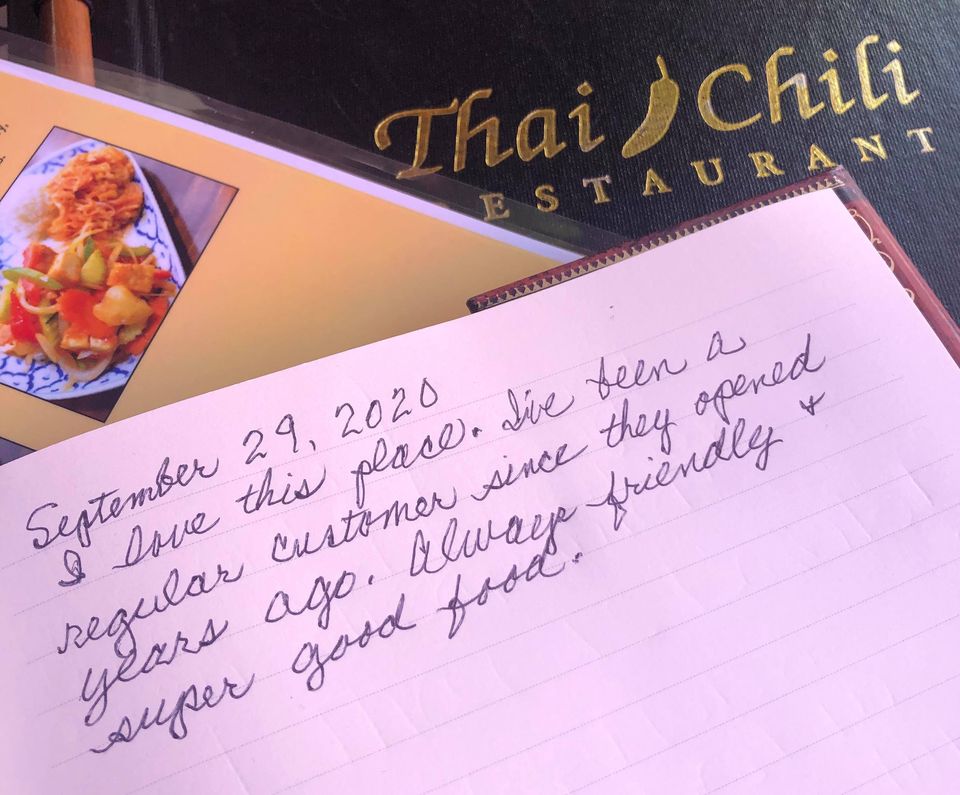 Thai Chili
ESTAURANT
September 29, 2020
I love this place. I've been a
regular customer since they opened
years ago. Always friendly +
super good food.